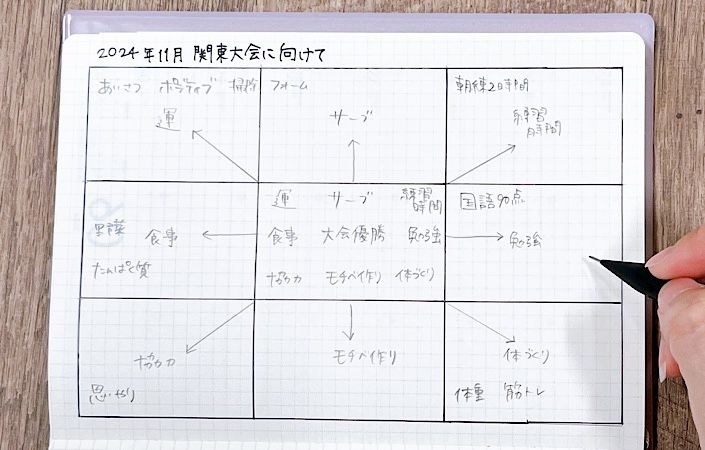 2024年11月 関東大会に向けて
あいさつ ポジティブ 掃除
運
フォーム
サーブ
朝練2時間
練習
時間
野菜 食事
たんぱく質
運 サーブ 練習
時間
食事 大会優勝 勉強
協力 モチベ作り 体づくり
国語90点
勉強
協力
思いやり
モチベ作り
体づくり
体重 筋トレ